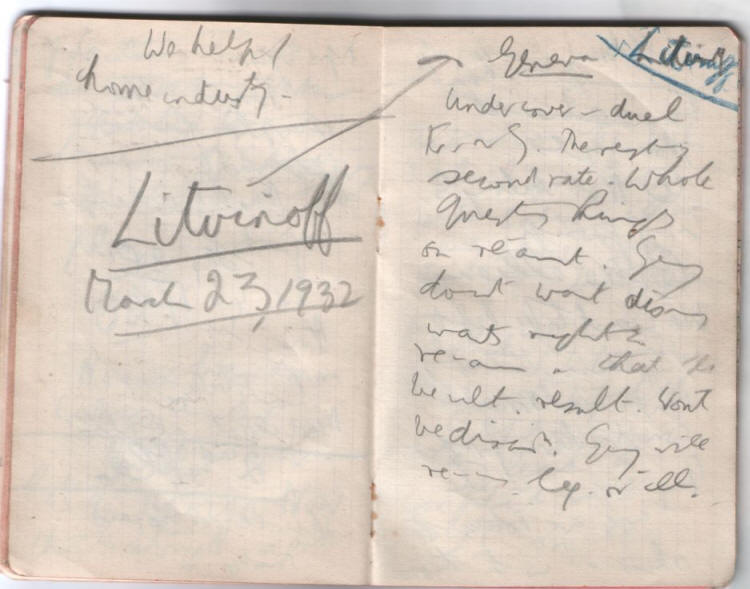 We help
home industry -
Litvinoff
March 23, 1932
Geneva Litvinoff
Undercover - duel
second rate. Whole
on rearmt. Gery
dont want disarm
wants right to
re-arm - that
be ult. result. Wont
be disarmt. Gery will
re-arm. leg. or ill.